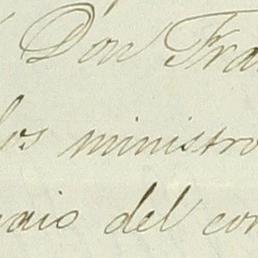 Don Fra
los ministro
del con